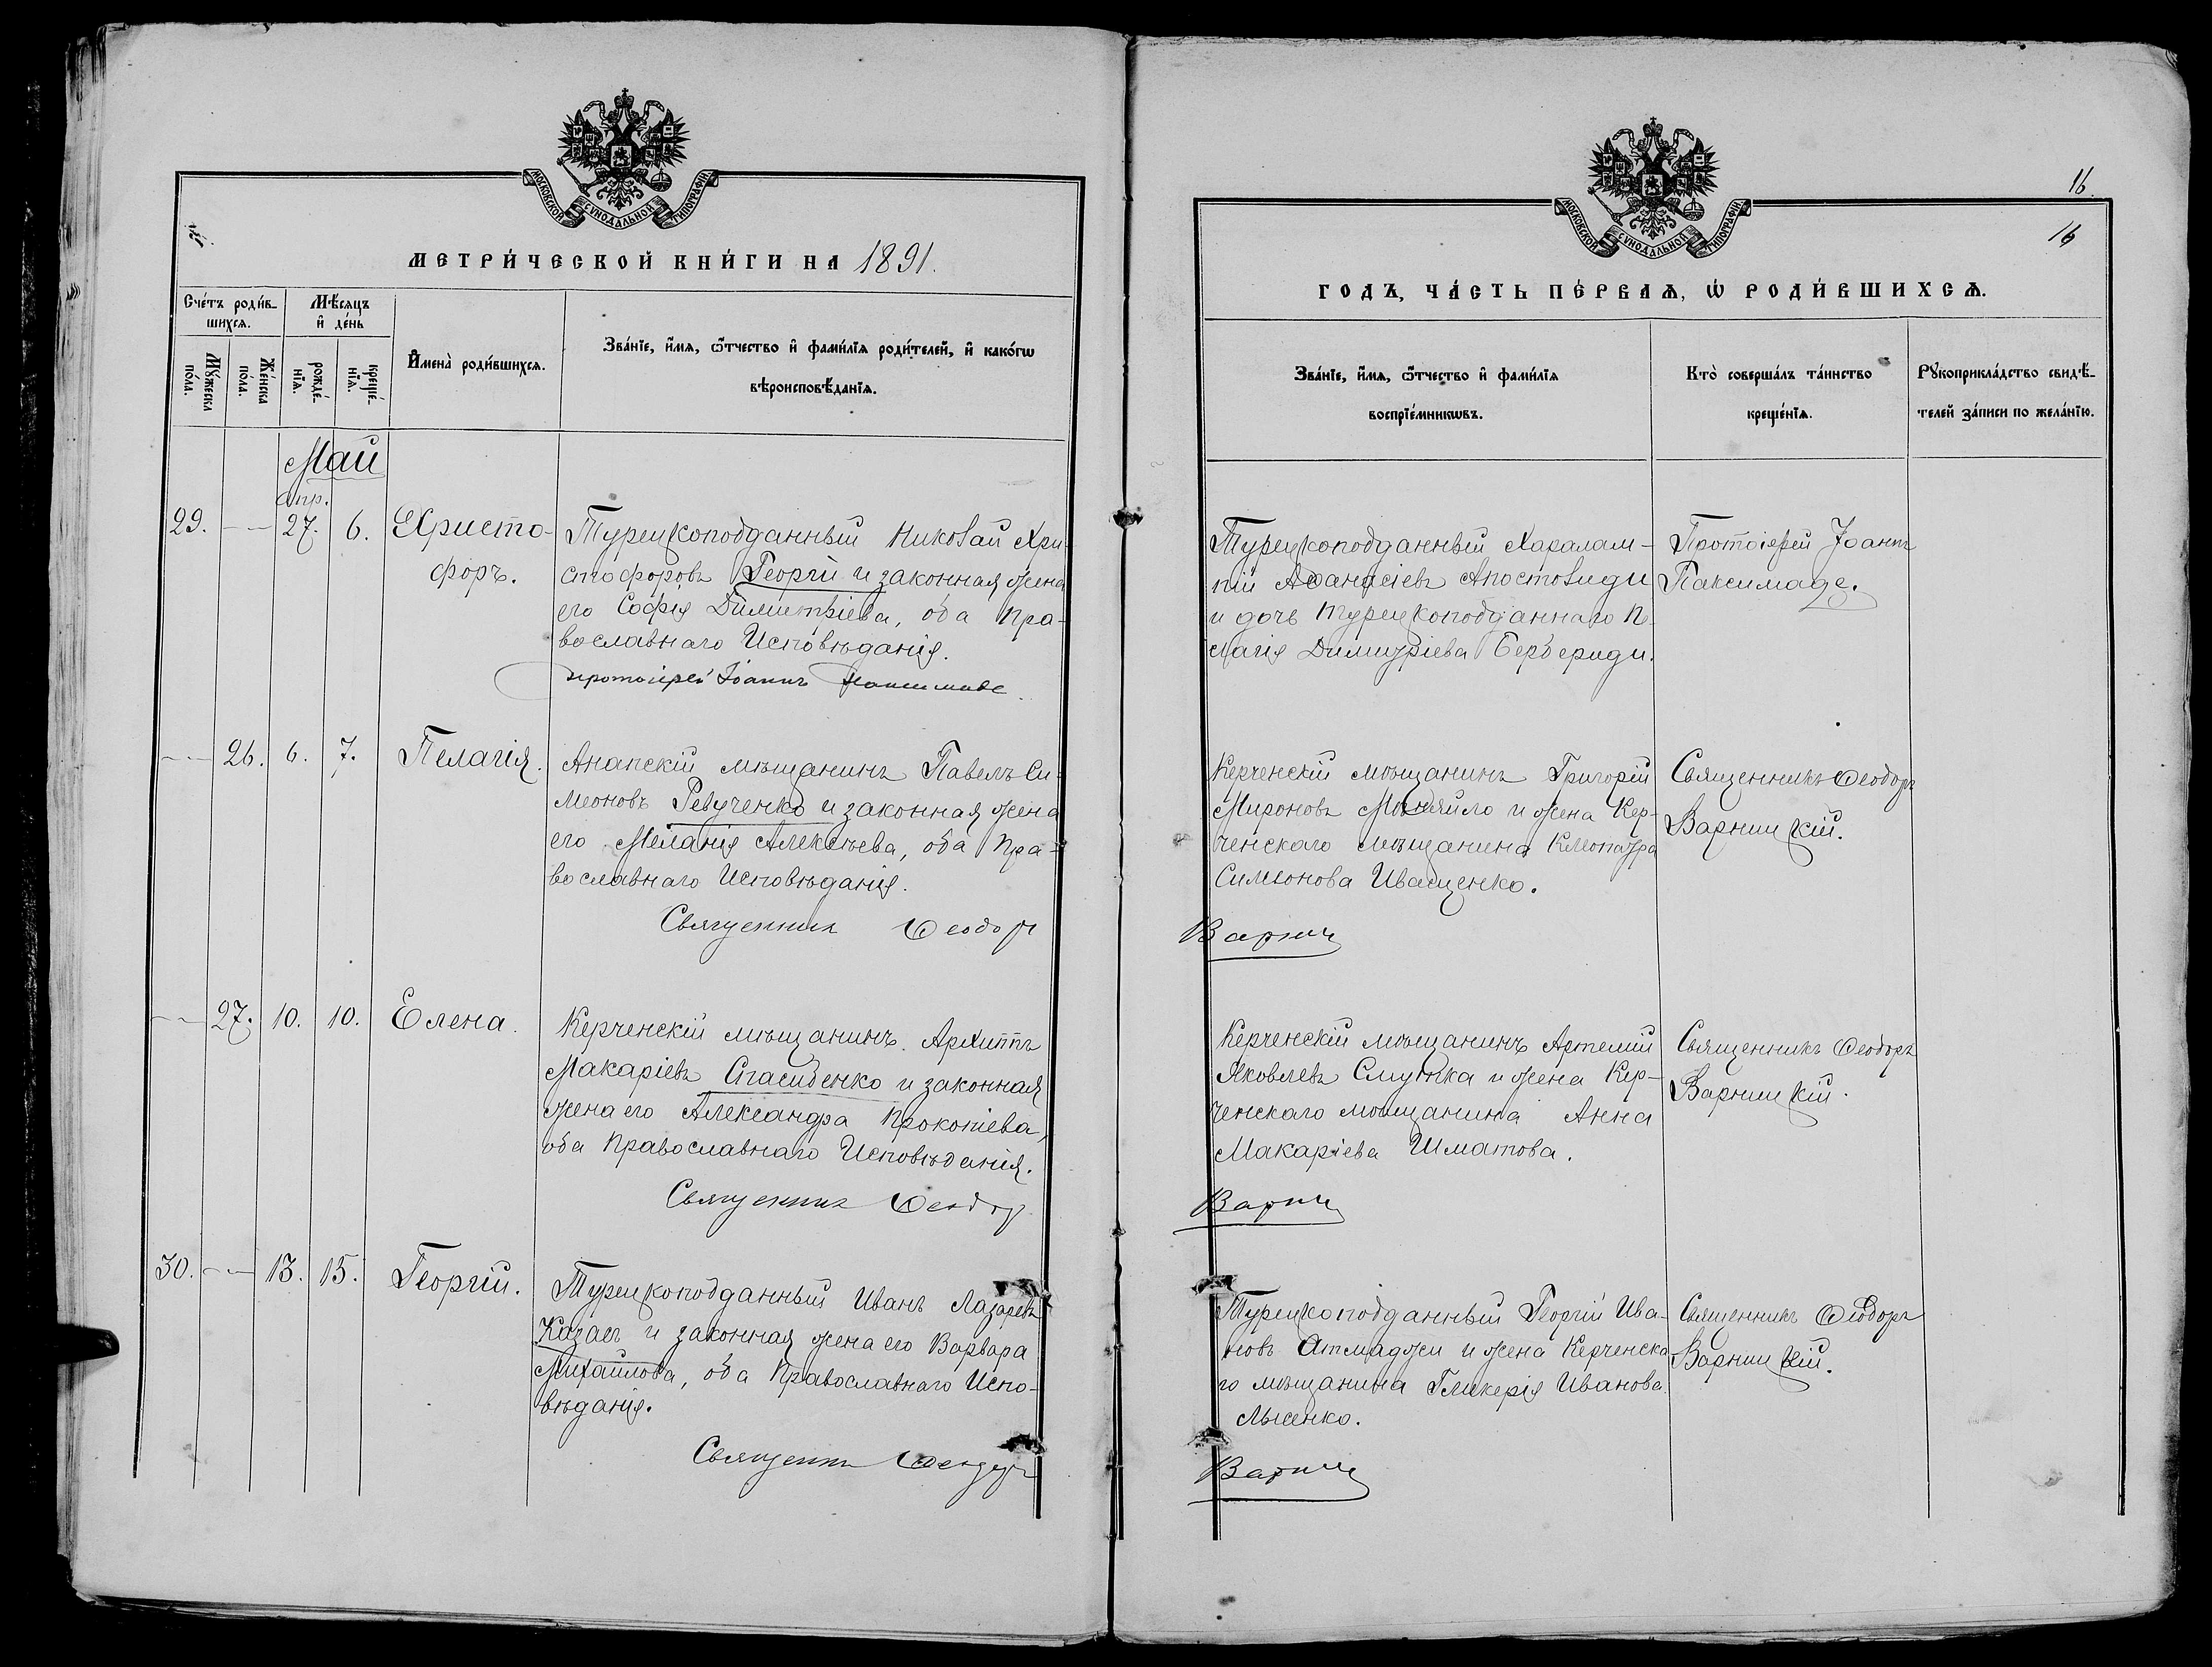 МОСКОВСКОЙ СУНОДАЛЬНОЙ ТИПОГРАФІИ
МЕТРИ́ЧЕСКОЙ КНИ́ГИ НА 1891.
Сче́тъ роди́в-
шихсѧ.
Мѣ́сѧцъ
и҆ де́нь
Мꙋ́жеска
по́ла.
Же́нска
по́ла.
рожде́-
нїѧ.
креще́-
нїѧ.
И҆мена̀ роди́вшихсѧ.
Зва́нїе, и҆́мѧ, ѻ҆́тчество и҆ фами́лїѧ роди́телей, и҆ како́гѡ
вѣроисповѣ́данїѧ.
Май
Апр.
29. — 27. 6. Христо-
форъ.
Турецкоподданный Николай Хри-
стофоровъ Георгій и законная жена
его Софія Димитріева, оба Пра-
вославнаго Исповѣданія.
Протоіерей Іоаннъ Паксимаде
— 26. 6. 7. Пелагія.
Анапскій мѣщанинъ Павелъ Си-
меоновъ Ревученко и законная жена
его Меланія Алексѣева, оба Пра-
вославнаго Исповѣданія.
Священникъ Ѳеодоръ
— 27. 10. 10. Елена.
Керченскій мѣщанинъ Архиппъ
Макаріевъ и законная
жена его Александра Прокопіева,
оба Православнаго Исповѣданія.
Священникъ Ѳеодоръ
30. — 13. 15. Георгій.
Турецкоподданный Иванъ Лазаревъ
и законная жена его Варвара
Михайлова, оба Православнаго Испо-
вѣданія.
Священникъ Ѳеодоръ
16.
16
МОСКОВСКОЙ СУНОДАЛЬНОЙ ТИПОГРАФІИ
ГОДЪ, ЧА́СТЬ ПЕ́РВАѦ, Ѡ҆ РОДИ́ВШИХСѦ.
Зва́нїе, и҆́мѧ, ѻ҆́тчество и҆ фами́лїѧ
воспрїе́мникѡвъ.
Кто̀ соверша́лъ та́инство
креще́нїѧ.
Рꙋкоприкла́дство свидѣ́-
телей за́писи по жела́нїю.
Турецкоподданный Харалам-
пій Аѳанасіевъ Апостолиди
и дочь Турецкоподданнаго Пе-
лагія Димитріева Бербериди.
Протоіерей Іоаннъ
Паксимаде.
Керченскій мѣщанинъ Григорій
Мироновъ и жена Кер-
ченскаго мѣщанина Клеопатра
Симеонова Иващенко.
Священникъ Ѳеодоръ
Варницкій.
Варниц
Керченскій мѣщанинъ Артемій
Яковлевъ и жена Кер-
ченскаго мѣщанина Анна
Макаріева Шматова.
Священникъ Ѳеодоръ
Варницкій.
Варниц
Турецкоподданный Георгій Ива-
новъ Атмаджи и жена Керченска-
го мѣщанина Гликерія Иванова
Лысенко.
Священникъ Ѳеодоръ
Варницкій.
Варниц